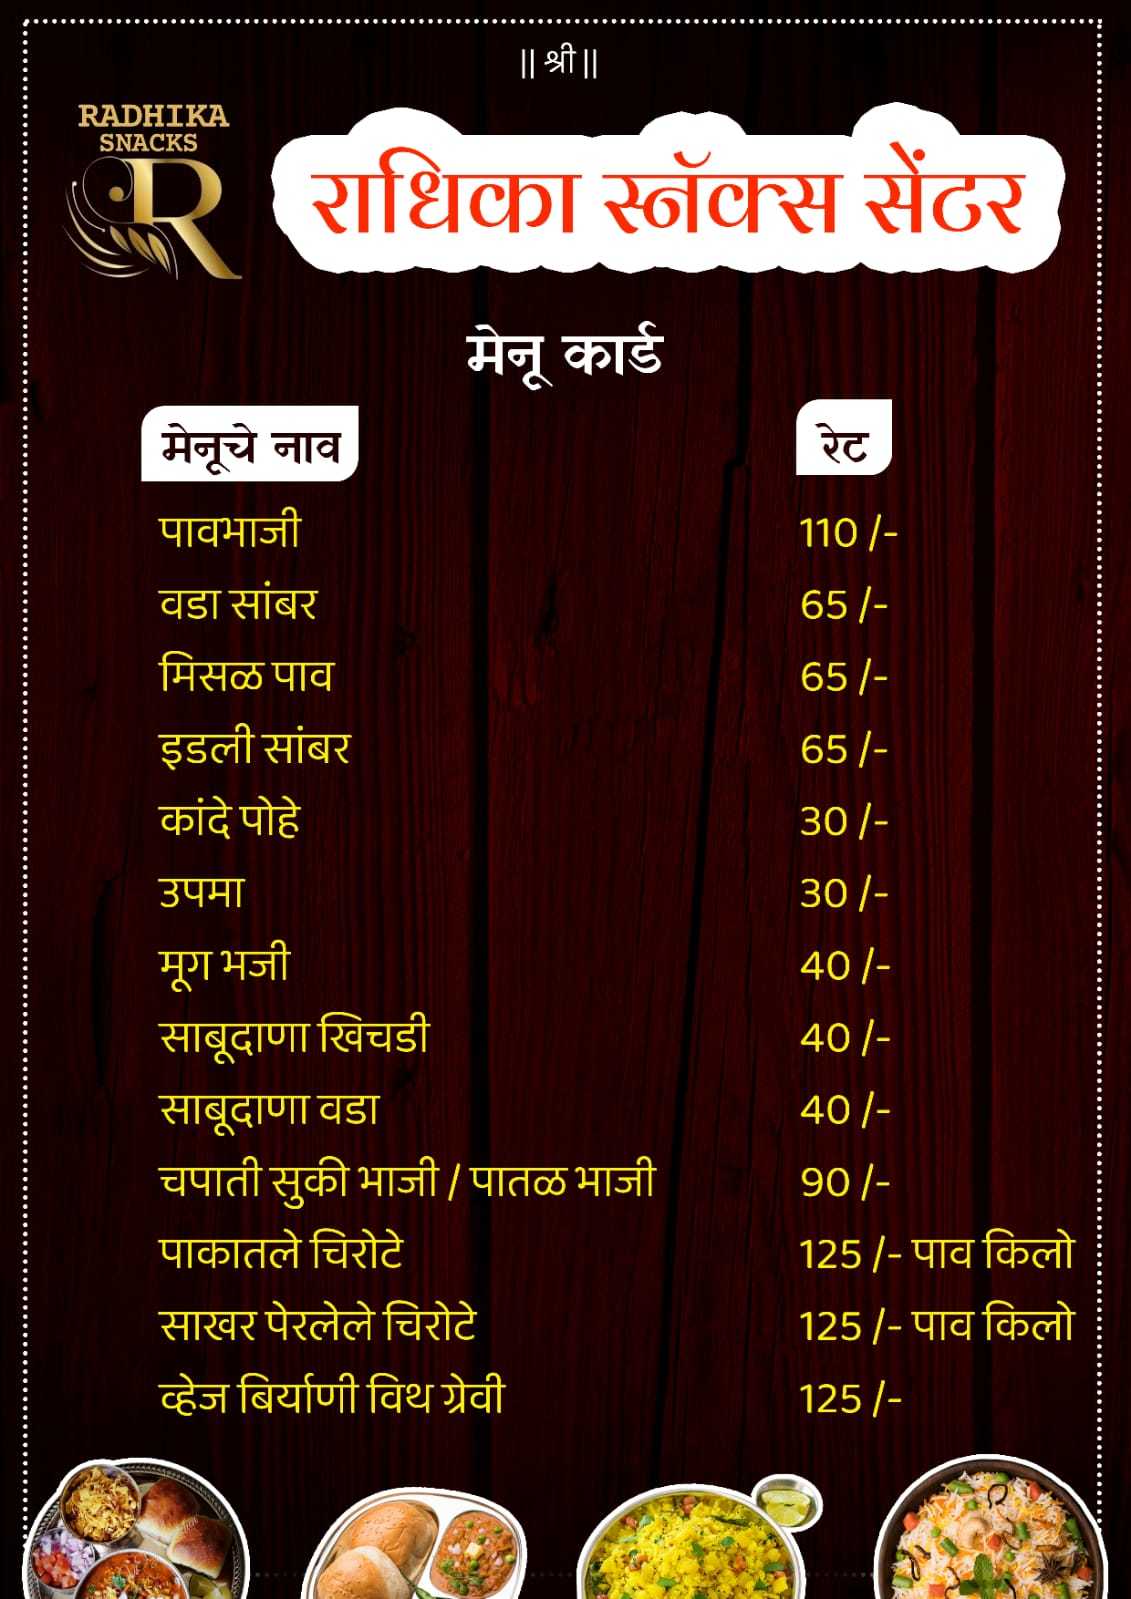 || श्री ||
RADHIKA
SNACKS
R
राधिका स्नॅक्स सेंटर
मेनू कार्ड
मेनूचे नाव रेट
पावभाजी 110 /-
वडा सांबर 65 /-
मिसळ पाव 65 /-
इडली सांबर 65 /-
कांदे पोहे 30 /-
उपमा 30 /-
मूग भजी 40 /-
साबूदाणा खिचडी 40 /-
साबूदाणा वडा 40 /-
चपाती सुकी भाजी / पातळ भाजी 90 /-
पाकातले चिरोटे 125 /- पाव किलो
साखर पेरलेले चिरोटे 125 /- पाव किलो
व्हेज बिर्याणी विथ ग्रेवी 125 /-